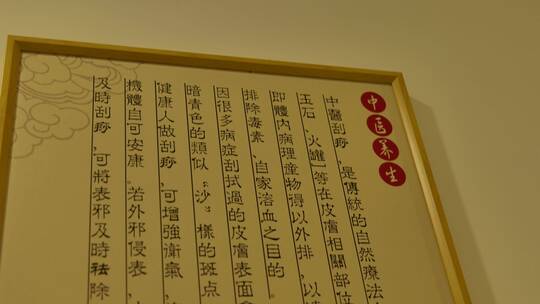 中医养生
中醫刮痧，是傳統的自然療法
玉石，火罐）等在皮膚相關部位
即體內病理產物得以外排，以達
排除毒素，自家溶血之目的。
因很多病症刮拭過的皮膚表面會
暗青色的類似“沙”樣的斑點
健康人做刮痧，可增強衛氣，
機體自可安康。若外邪侵表，
及時刮痧，可將表邪及時祛除